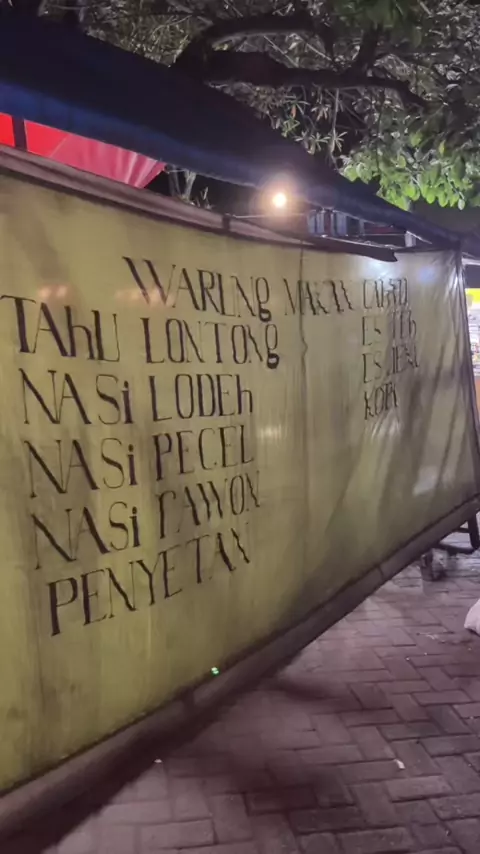 WARUNg MAKAN
TAhU LONTONg
NASi LODEh
NASi PECEL
NASi RAWON
PENYETAN
ES TEh
ES JERUK
KOPI